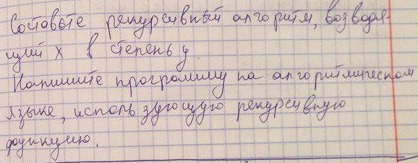 Составьте рекурсивный алгоритм, возводя-
щий х в степень у.
Напишите программу на алгоритмическом
языке, использующую рекурсивную
функцию.